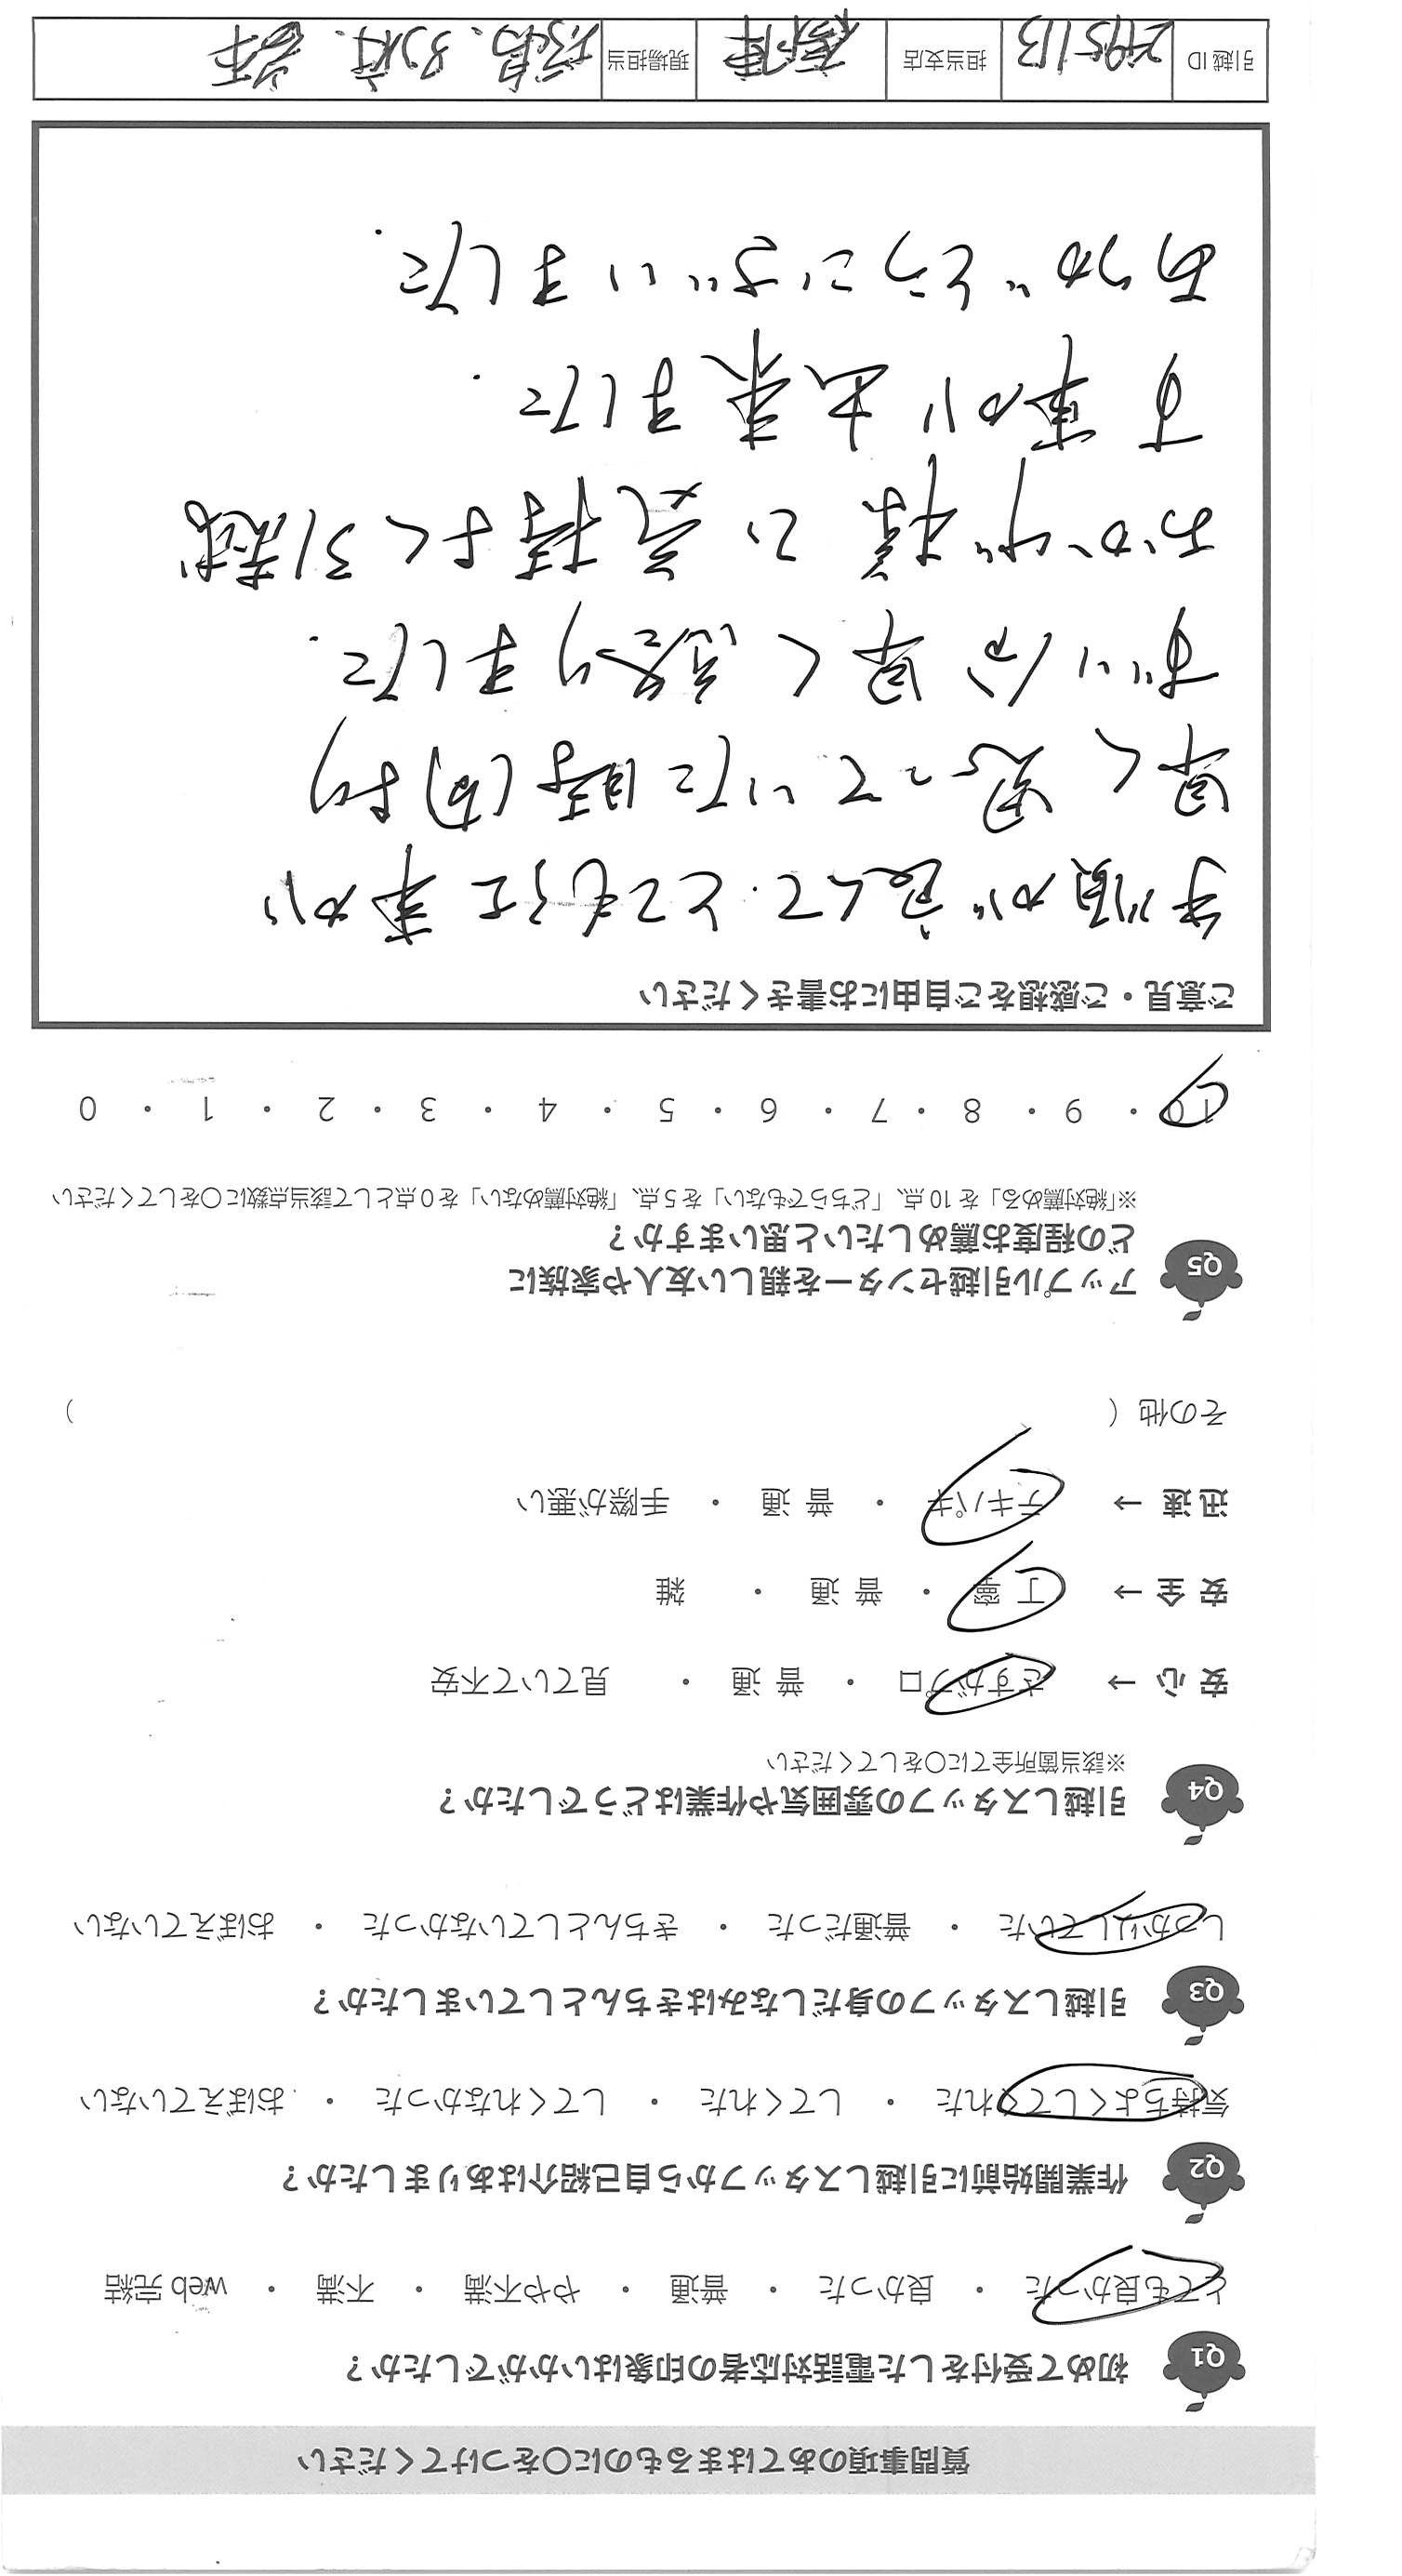 質問事項のあてはまるものに〇をつけてください
Q1 初めて受付をした電話対応者の印象はいかがでしたか？
とても良かった ・ 良かった ・ 普通 ・ やや不満 ・ 不満 ・ web 完結
Q2 作業開始前に引越しスタッフから自己紹介はありましたか？
気持ちよくしてくれた ・ してくれた ・ してくれなかった ・ おぼえていない
Q3 引越しスタッフの身だしなみはきちんとしていましたか？
しっかりしていた ・ 普通だった ・ きちんとしていなかった ・ おぼえていない
Q4 引越しスタッフの雰囲気や作業はどうでしたか？
※該当箇所全てに〇をしてください
安 心 → さすがプロ ・ 普 通 ・ 見ていて不安
安 全 → 丁 寧 ・ 普 通 ・ 雑
迅 速 → テキパキ ・ 普 通 ・ 手際が悪い
その他（ ）
Q5 アップル引越センターを親しい友人や家族に
どの程度お薦めしたいと思いますか？
※「絶対薦める」を 10 点、「どちらでもない」を 5 点、「絶対薦めない」を 0 点として該当点数に〇をしてください
10 ・ 9 ・ 8 ・ 7 ・ 6 ・ 5 ・ 4 ・ 3 ・ 2 ・ 1 ・ 0
ご意見・ご感想をご自由にお書きください
手順が良くて、とても仕事が
早く思っていた時間より
ずい分早く終りました.
おかげ様で気持よく引越
す事が出来ました.
ありがとうございました.
引越 ID 2495113 担当支店 高津 現場担当